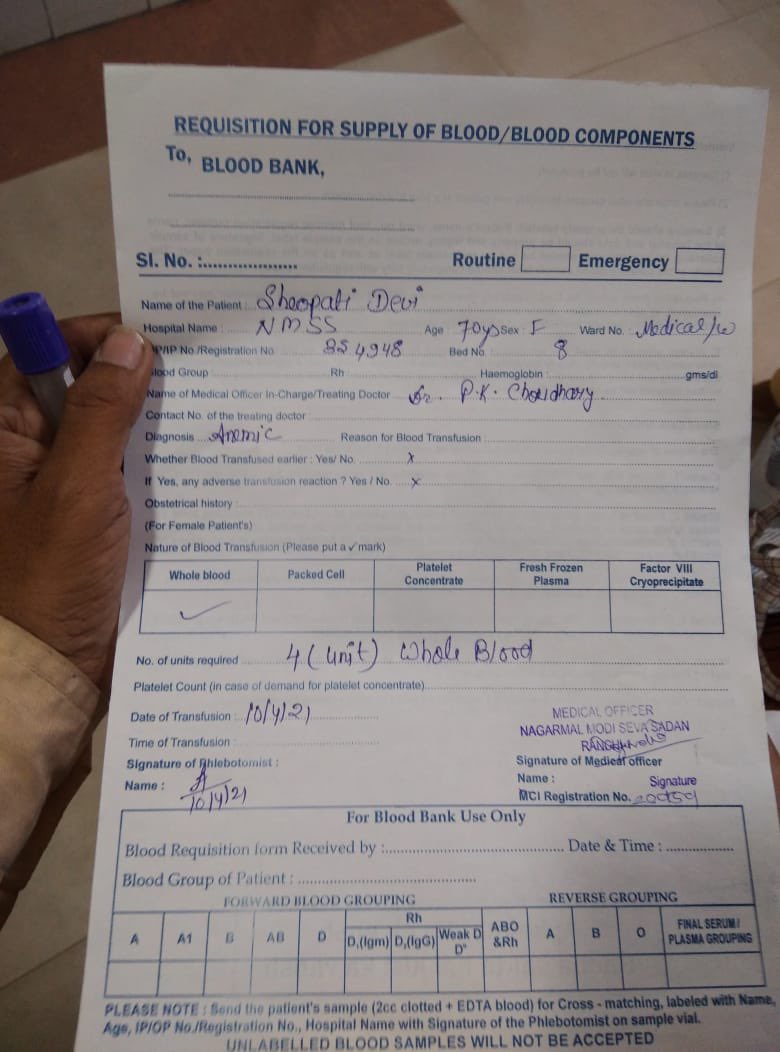 REQUISITION FOR SUPPLY OF BLOOD/BLOOD COMPONENTS
To,
BLOOD BANK,
Sl. No. :................... Routine Emergency
Name of the Patient : Sheopati Devi
Hospital Name : NMSS Age 70ys Sex : F Ward No. : Medical/w
OP/IP No./Registration No. 354948 Bed No. 8
Blood Group Rh Haemoglobin : gms/dl
Name of Medical Officer In-Charge/Treating Doctor Dr. P.K. Choudhary
Contact No. of the treating doctor
Diagnosis Anemic Reason for Blood Transfusion
Whether Blood Transfused earlier : Yes/ No. x
If Yes, any adverse transfusion reaction ? Yes / No. x
Obstetrical history :
(For Female Patient's)
Nature of Blood Transfusion (Please put a ✓ mark)
Whole blood Packed Cell Platelet Concentrate Fresh Frozen Plasma Factor VIII Cryoprecipitate
✓
No. of units required 4 (unit) Whole Blood
Platelet Count (in case of demand for platelet concentrate)
Date of Transfusion : 10/4/21
MEDICAL OFFICER
NAGARMAL MODI SEVA SADAN
RANCHI
Time of Transfusion :
Signature of Phlebotomist : Signature of Medical officer
Name : Name : Signature
10/4/21 MCI Registration No.
For Blood Bank Use Only
Blood Requisition form Received by :.................................. Date & Time : ...............
Blood Group of Patient : ..................................
FORWARD BLOOD GROUPING REVERSE GROUPING
A A1 B AB D Rh ABO &Rh A B O FINAL SERUM / PLASMA GROUPING
D,(Igm) D,(IgG) Weak D Dᵘ
PLEASE NOTE : Send the patient's sample (2cc clotted + EDTA blood) for Cross - matching, labeled with Name,
Age, IP/OP No./Registration No., Hospital Name with Signature of the Phlebotomist on sample vial.
UNLABELLED BLOOD SAMPLES WILL NOT BE ACCEPTED